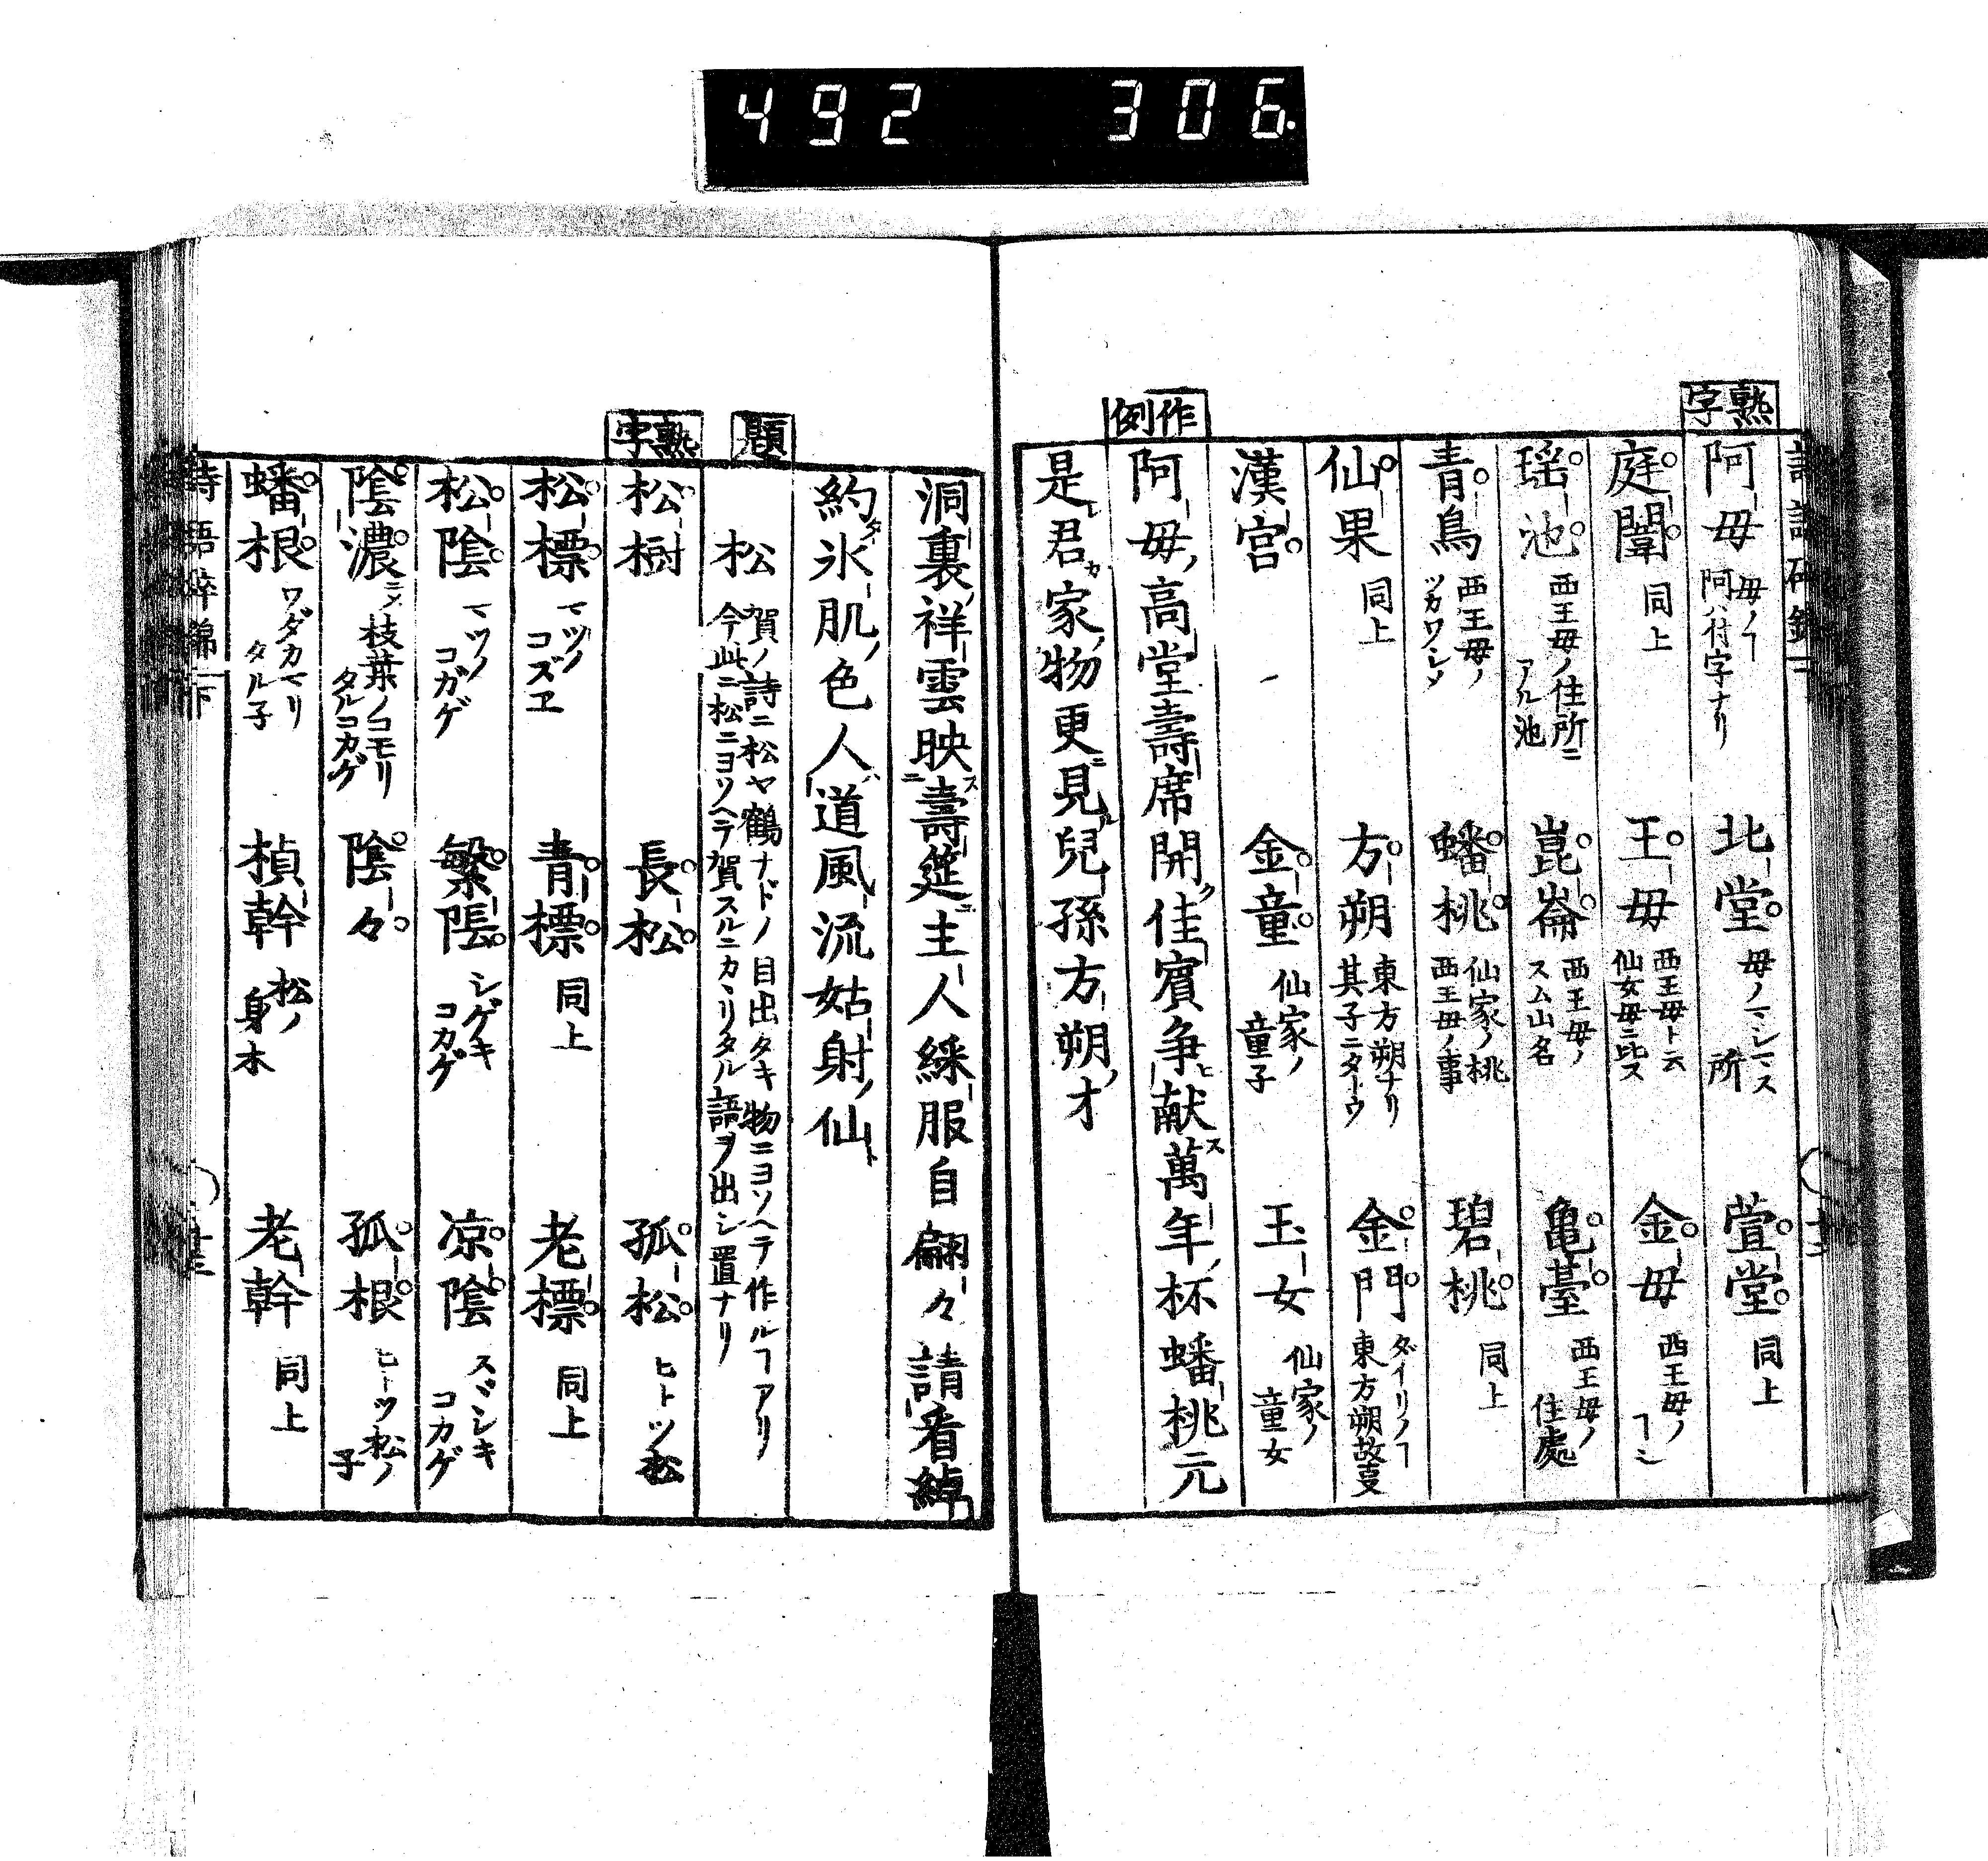 492 306.
熟字
阿母 母ノヿ 阿ハ付字ナリ 北堂 母ノマシマス所 萱堂 同上
庭闈 同上 王母 西王母ト云仙女母ニ比ス 金母 西王母ノヿシ
瑶池 西王母ノ住所ニアル池 崑崙 西王母ノスム山名 亀臺 西王母ノ住處
青鳥 西王母ノツカワシメ 蟠桃 仙家ノ桃西王母ノ事 碧桃 同上
仙果 同上 方朔 東方朔ナリ其子ニタトウ 金門 ダイリノヿ東方朔故事
漢宮 金童 仙家ノ童子 玉女 仙家ノ童女
作例
阿母ノ高堂壽席開ク佳賓争ヒ献ス萬年ノ杯蟠桃元
是レ君カ家ノ物更ニ見ル兒孫方朔ノ才
洞裏ノ祥雲映ス壽筵ニ主人綵服自翩々請看綽
約タル氷肌ノ色人ハ道フ風流姑射ノ仙ト
題
松 賀ノ詩ニ松ヤ鶴ナドノ目出タキ物ニヨソヘテ作ルヿアリ
今此ニ松ニヨソヘテ賀スルニカヽリタル語ヲ出シ置ナリ
熟字
松樹 長松 孤松 ヒトツ松
松標 マツノコズヱ 青標 同上 老標 同上
松陰 マツノコガゲ 繁陰 シゲキコカゲ 凉陰 スヾシキコカゲ
陰濃 枝葉ノコモリタルコカゲ 陰々 孤根 ヒトツ松ノ子
蟠根 ワダカマリタル子 楨幹 松ノ身木 老幹 同上
詩語碎錦 下